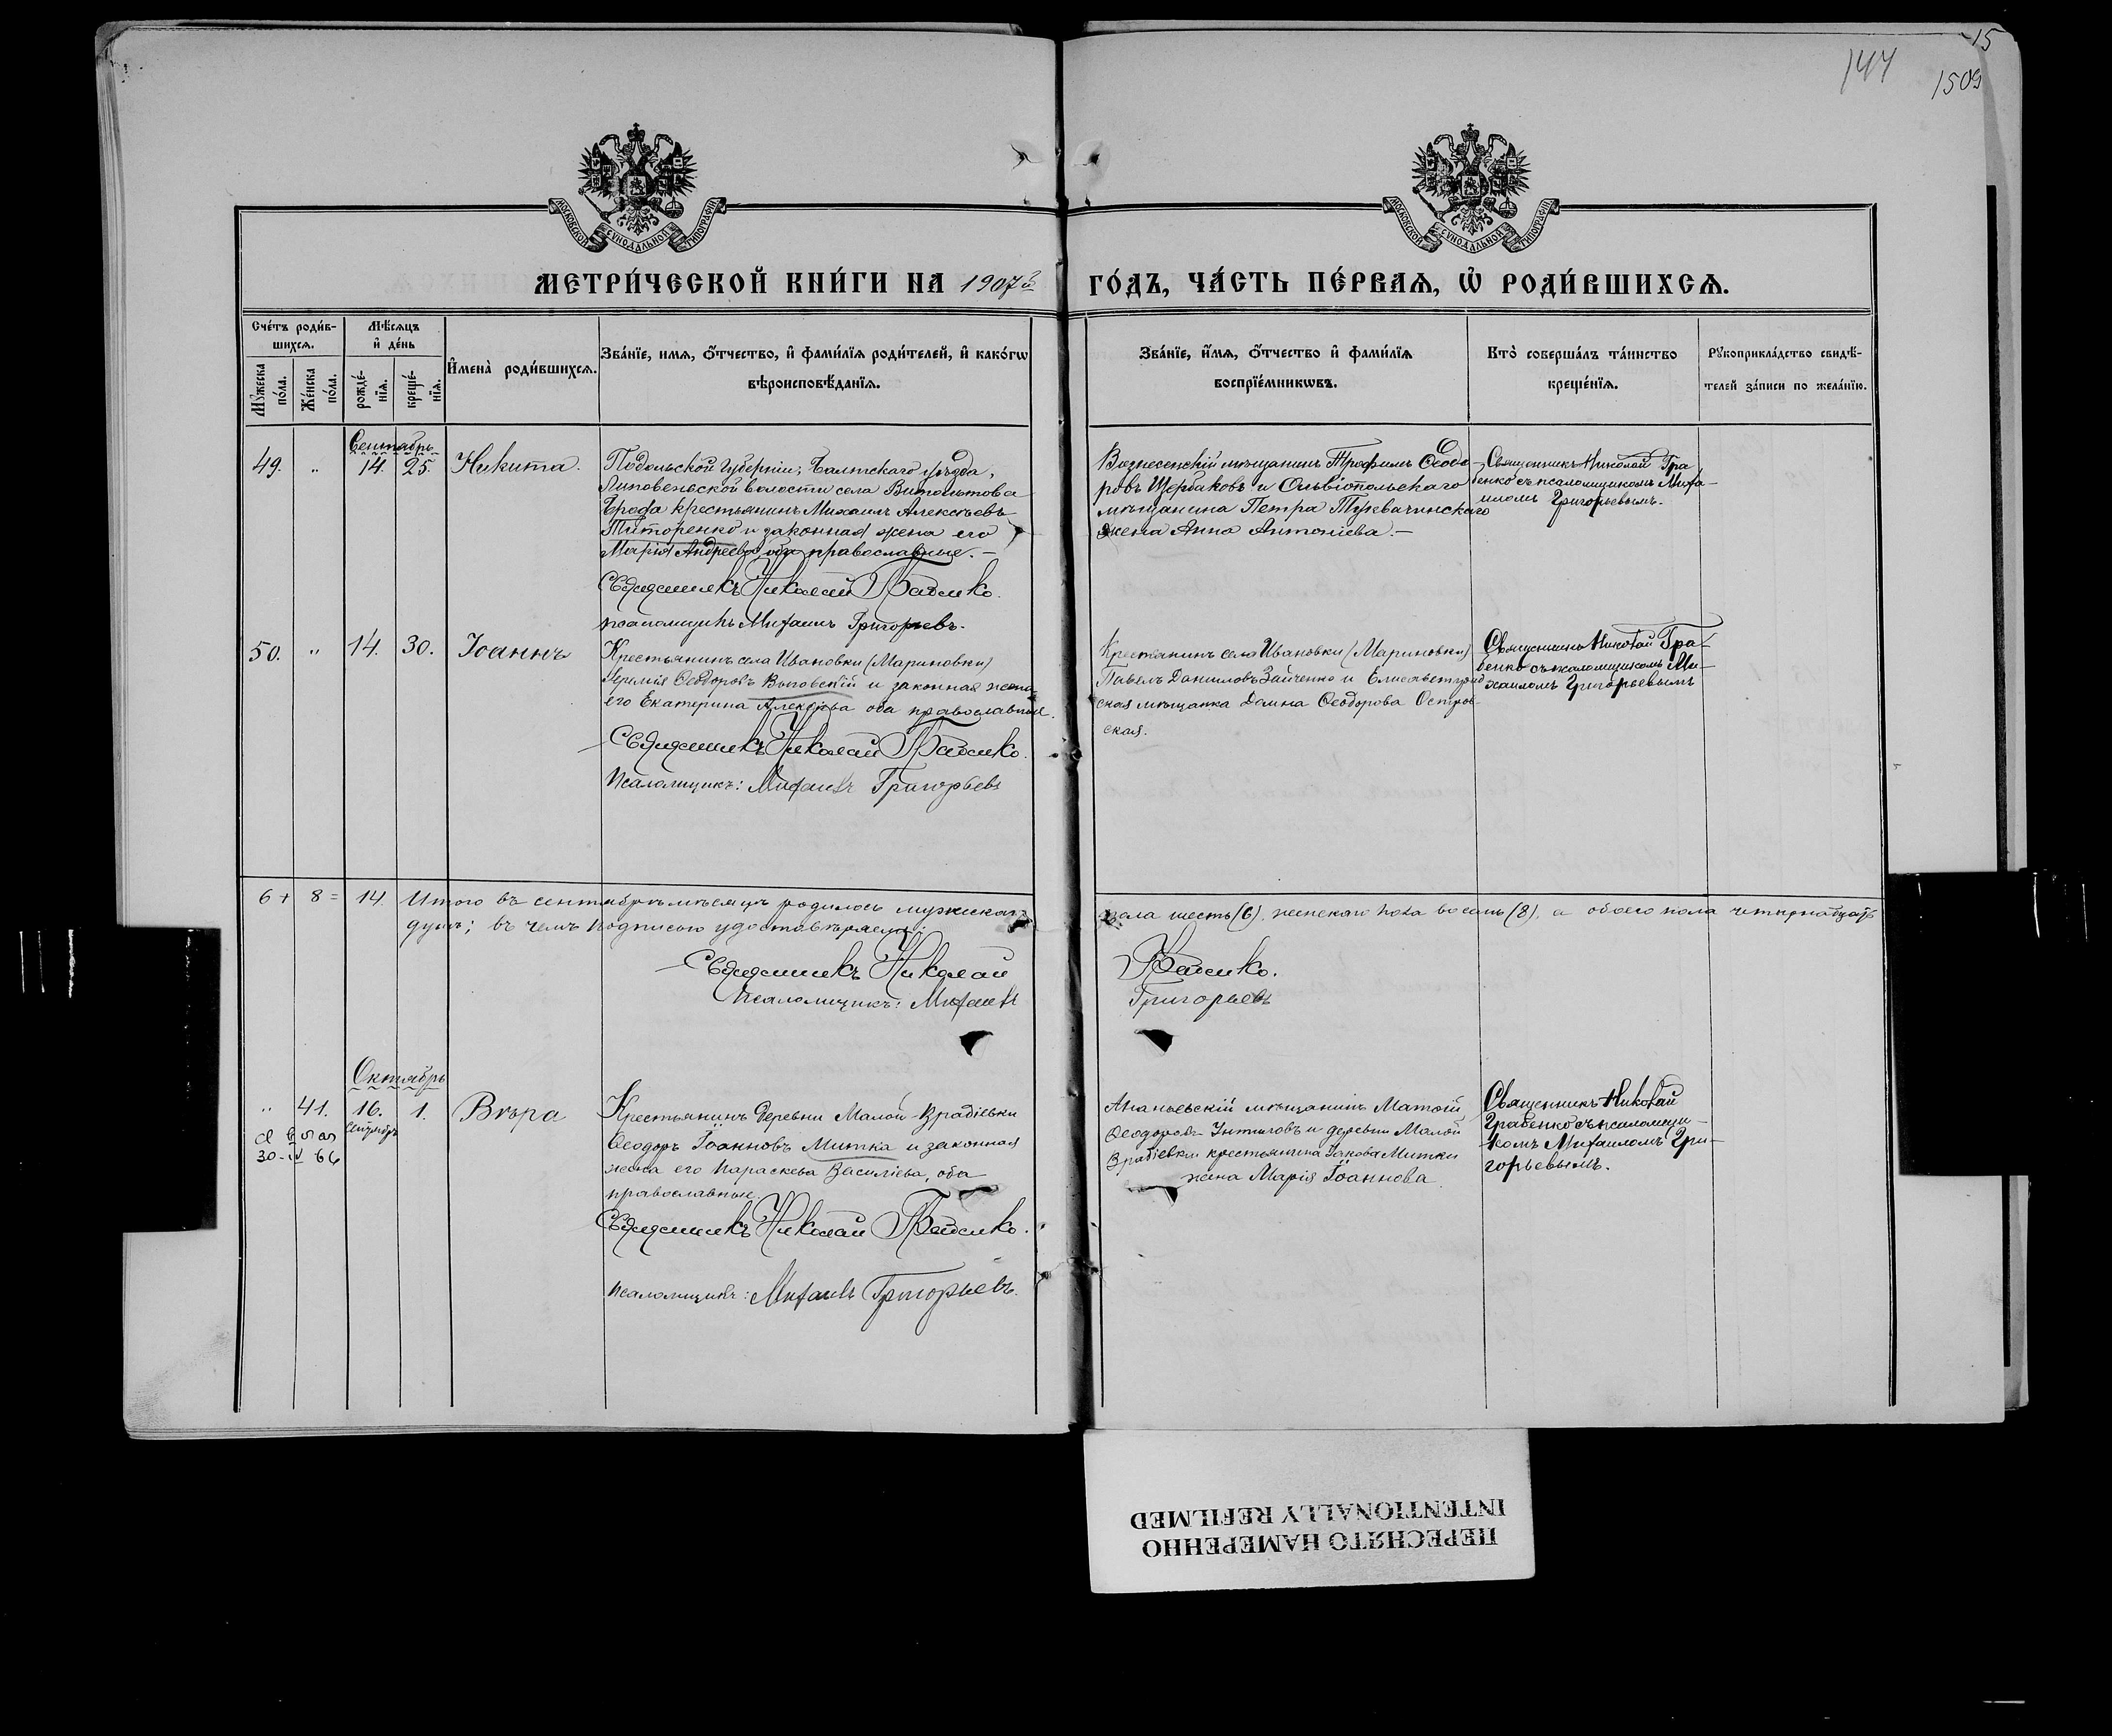 15
144
1509
МОСКОВСКОЙ СѴНОДАЛЬНОЙ ТИПОГРАФІИ
МОСКОВСКОЙ СѴНОДАЛЬНОЙ ТИПОГРАФІИ
МЕТРИ́ЧЕСКОЙ КНИ́ГИ НА 1907й ГО́ДЪ, ЧА́СТЬ ПЕ́РВАѦ, Ѡ҆ РОДИ́ВШИХСѦ.
Сче́тъ роди́в-
шихсѧ.
Мѣ́сѧцъ
и҆ де́нь
Мꙋ́жеска
по́ла.
Же́нска
по́ла.
рожде́-
нїѧ.
креще́-
нїѧ.
И҆мена̀ роди́вшихсѧ.
Зва́нїе, имѧ, о҆́тчество, и҆ фами́лїѧ роди́телей, и҆ како́гѡ
вѣроисповѣ́данїѧ.
Зва́нїе, и҆́мѧ, о҆́тчество и҆ фами́лїѧ
воспрїе́мникѡвъ.
Кто̀ соверша́лъ та́инство
креще́нїѧ.
Рꙋкоприкла́дство свидѣ́-
телей за́писи по жела́нїю.
Сентябрь
49. " 14. 25. Никита.
Подольской губерніи, Балтскаго уѣзда,
Липовеньской волости села Витольтова
Брода крестьянинъ Михаилъ Алексѣевъ
Титоренко и законная жена его
Марія Андреева, оба православные. –
Священникъ Николай Грабенко.
псаломщикъ Михаилъ Григорьевъ.
Вознесенскій мѣщанинъ Трофимъ Ѳеодо-
ровъ Щербаковъ и Ольвіопольскаго
мѣщанина Петра Туквачинскаго
жена Анна Антоніева. –
Священникъ Николай Гра
бенко съ псаломщикомъ Миха-
иломъ Григорьевымъ.
50. " 14. 30. Іоаннъ
Крестьянинъ села Ивановки (Мариновки)
Іеремія Ѳеодоровъ Выговскій и законная жена
его Екатерина Алексѣева оба православные.
Священникъ Николай Грабенко.
Псаломщикъ: Михаилъ Григорьевъ
Крестьянинъ села Ивановки (Мариновки)
Павелъ Даниловъ Зайченко и Елисаветград
ская мѣщанка Домна Ѳеодорова Остров-
ская.
Священникъ Николай Гра-
бенко съ псаломщикомъ Ми-
хаиломъ Григорьевымъ
6 + 8 = 14. Итого въ сентябрѣ мѣсяцѣ родилось мужескаго пола шесть (6), женскаго пола восемь (8), а обоего пола четырнадцать
душъ; въ чемъ подписью удостовѣряемъ:
Священникъ Николай Грабенко.
Псаломщикъ: Михаилъ Григорьевъ
Октябрь
" 41. 16. 1. Вѣра
сентябрь
Крестьянинъ деревни Малой-Врадіевки
Ѳеодоръ Іоанновъ Митка и законная
жена его Параскева Василіева, оба
православные.
Священникъ Николай Грабенко.
Псаломщикъ: Михаилъ Григорьевъ.
Ананьевскій мѣщанинъ Матѳій
Ѳеодоровъ и деревни Малой
Врадіевки крестьянина Іакова Митки
жена Марія Іоаннова
Священникъ Николай
Грабенко съ псаломщи-
комъ Михаиломъ Гри-
горьевымъ.
ПЕРЕСНЯТО НАМЕРЕННО
INTENTIONALLY REFILMED